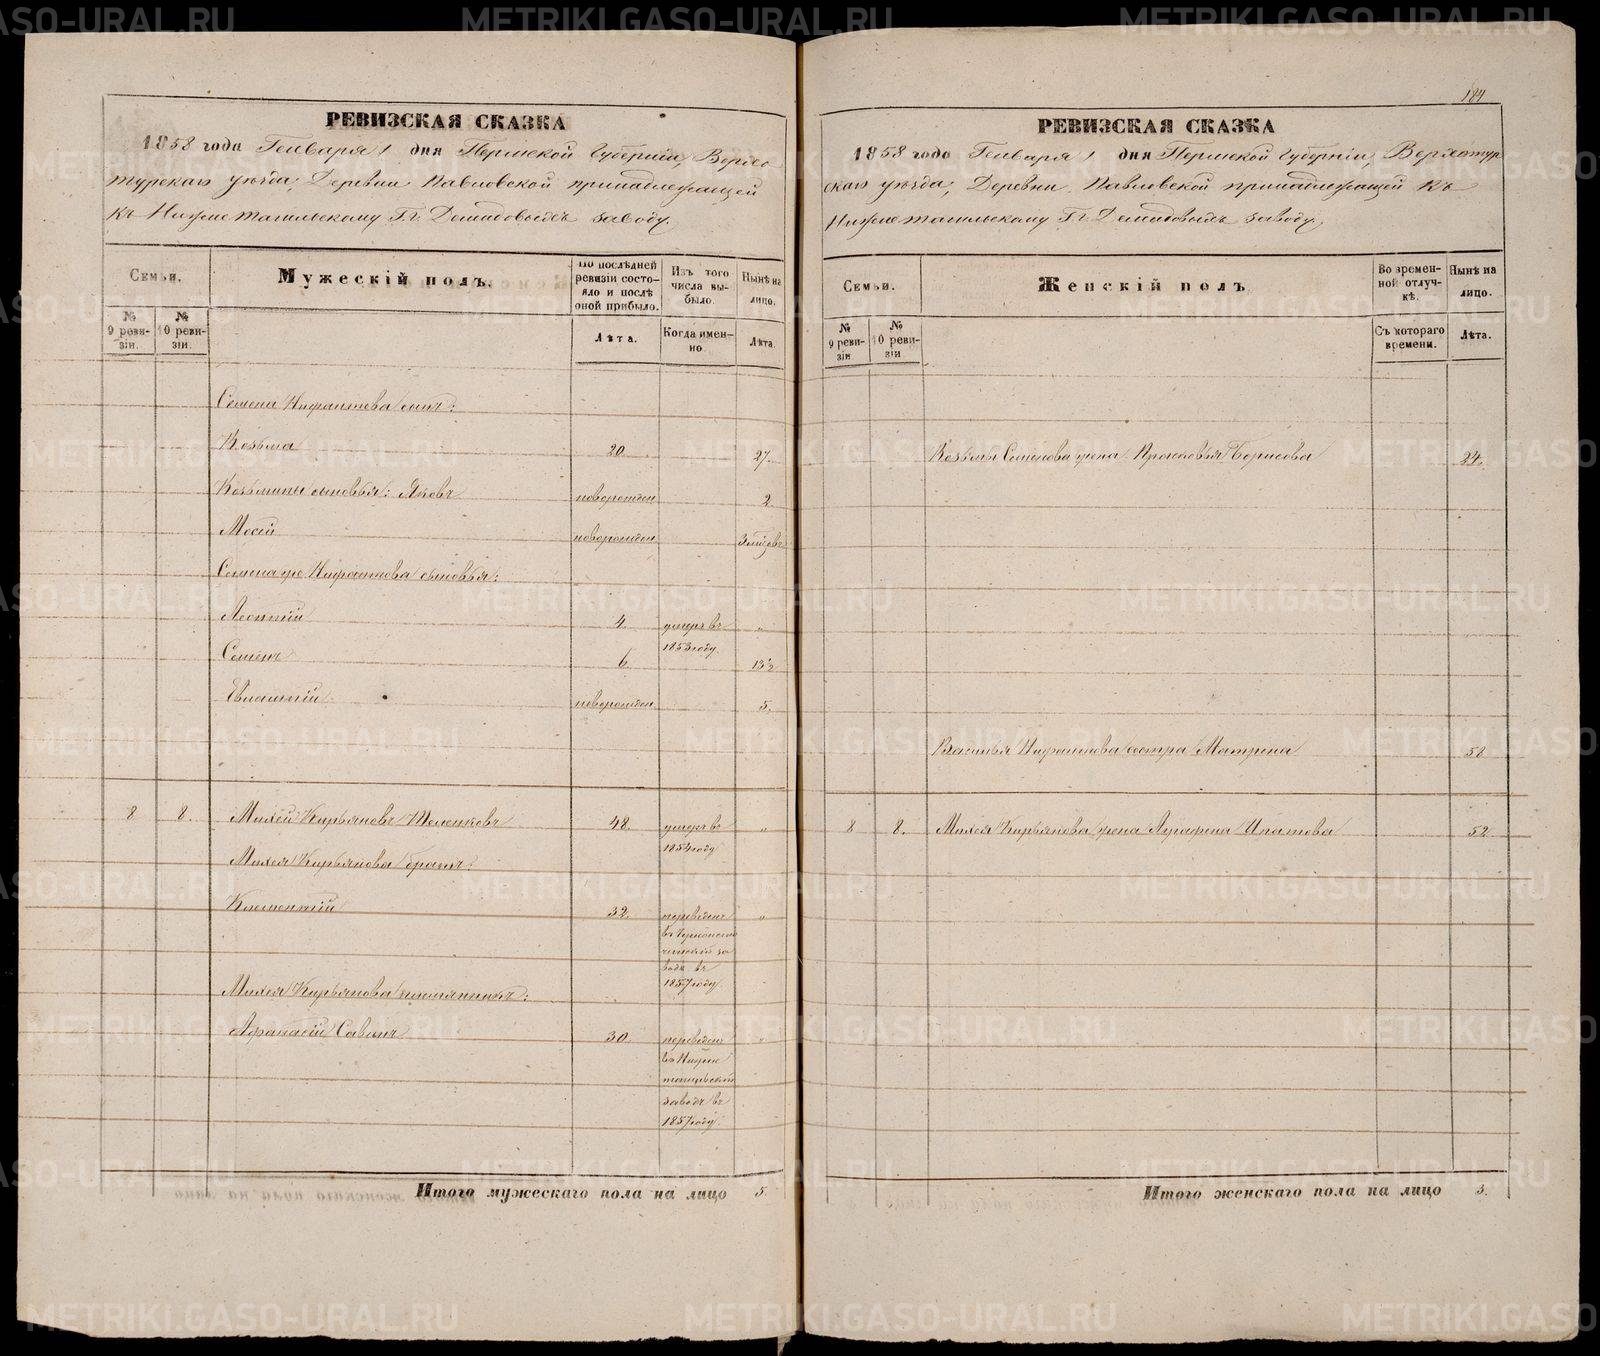 184
РЕВИЗСКАЯ СКАЗКА
1858 года Генваря 1 дня Пермской Губернiи, Верхо
турскаго уѣзда, Деревни Павловской принадлежащей
къ Нижнетагильскому Гг. Демидовыхъ заводу.
Семьи.
Мужескiй полъ.
По послѣдней ревизiи состояло и послѣ оной прибыло.
Изъ того числа выбыло.
Нынѣ на лицо.
№ 9 ревизiи.
№ 10 ревизiи.
Лѣта.
Когда именно
Лѣта.
Семена Нифантова сынъ:
Козьма 20 27.
Козьмины сыновья: Яковъ новорожден 2
Мосей новорожден 3 мѣсяцъ
Семена же Нифантова сыновья:
Леонтiй 4 умеръ въ 1853 году. „
Семенъ 6 13½
Евлампiй новорожден 5.
8 8. Михей Кирьяновъ 48. умеръ въ 1854 году „
Михея Кирьянова братъ:
Климентiй 32. переведенъ „
въ
заводъ въ
1857 году
Михея Кирьянова племянникъ:
Афанасiй Савинъ 30 переведенъ „
въ Нижне
тагильскiй
заводъ въ
1857 году.
Итого мужескаго пола на лицо 5.
РЕВИЗСКАЯ СКАЗКА
1858 года Генваря 1 дня Пермской Губернiи, Верхотур
скаго уѣзда, Деревни Павловской принадлежащей къ
Нижнетагильскому Гг. Демидовыхъ заводу.
Семьи.
Женскiй полъ.
Во временной отлучкѣ.
Нынѣ на лицо.
№ 9 ревизiи
№ 10 ревизiи
Съ котораго времени.
Лѣта.
Козьмы Семенова жена Прасковья Борисова 24.
Нифантова сестра Матрена 58
8 8. Михея Кирьянова жена Аграфена Ипатова 52
Итого женскаго пола на лицо 3.
METRIKI.GASO-URAL.RU